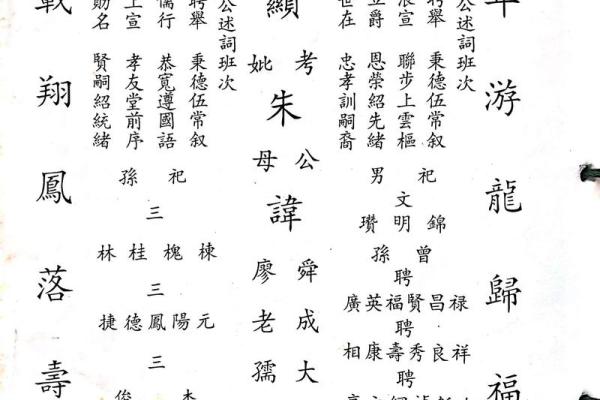 游龍歸福
公述詞班次
聘舉 秉德伍常叙
宣 聯步上雲樞
爵 恩榮紹先緒
世在 忠孝訓嗣裔
祀男
文
錦明瓚
曾孫
聘
禄昌賢福英廣
聘
祥良秀壽康相
聘
顯
考妣
朱
公母
諱
舜成大
廖老孺
公述詞班次
聘舉 秉德伍常叙
儒行 恭寬遵國語
上宣 孝友堂前序
勛名 賢嗣紹統緒
祀孫
三
棟槐桂林
三
元陽鳳德捷
三
翔鳳落壽